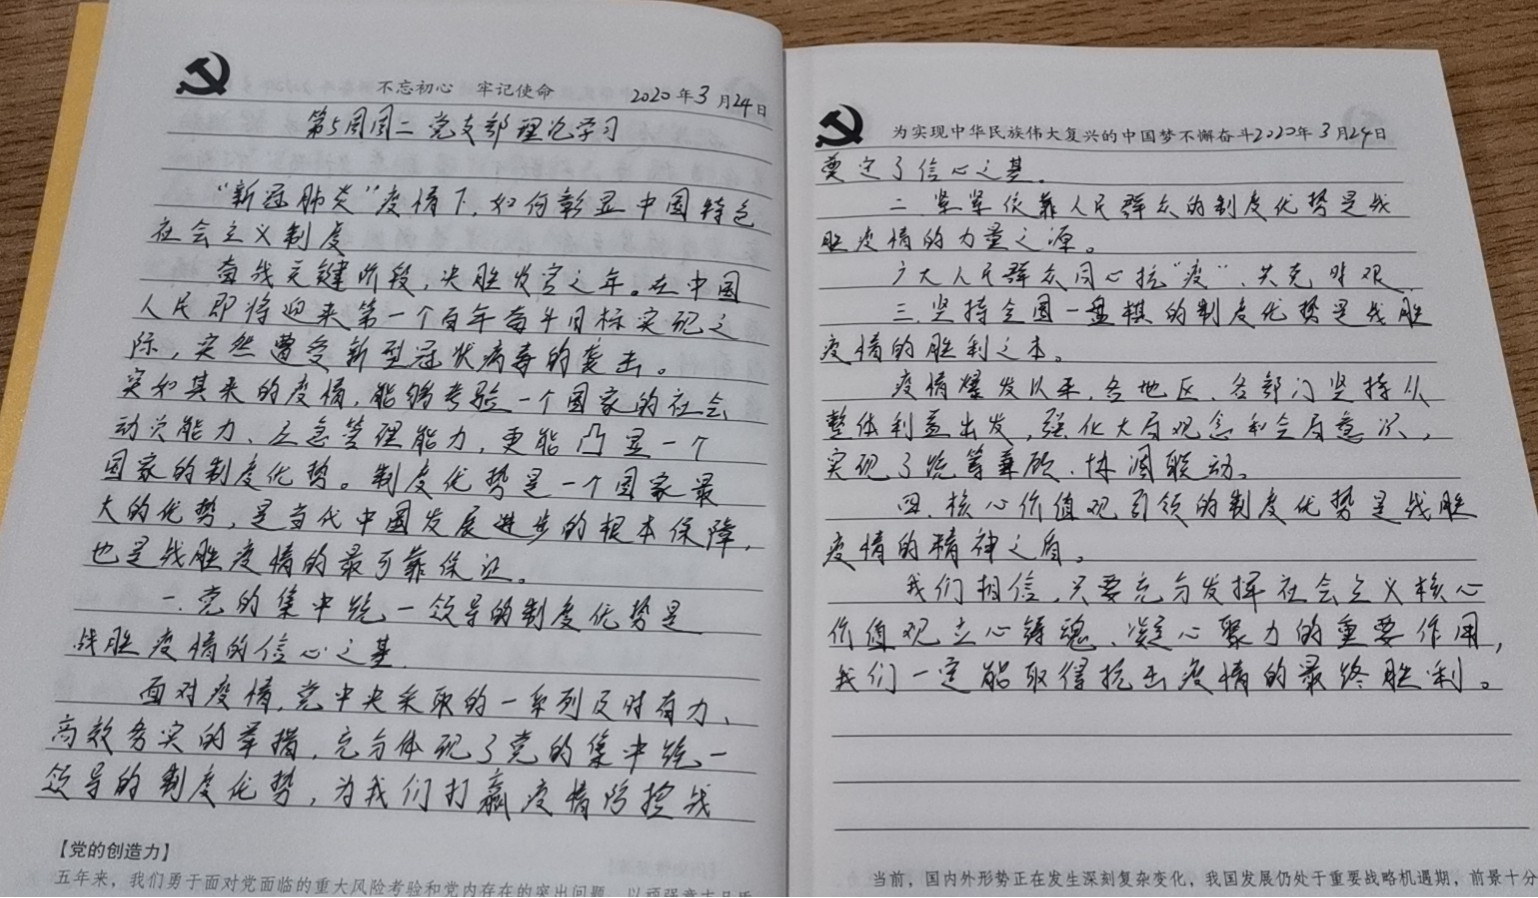 不忘初心 牢记使命 2020年3月24日
第5周周二 党支部理论学习
“新冠肺炎”疫情下,如何彰显中国特色
社会主义制度
奋战关键阶段,决胜攻坚之年。在中国
人民即将迎来第一个百年奋斗目标实现之
际,突然遭受新型冠状病毒的袭击。
突如其来的疫情,能够考验一个国家的社会
动员能力、应急管理能力,更能凸显一个
国家的制度优势。制度优势是一个国家最
大的优势,是当代中国发展进步的根本保障,
也是战胜疫情的最可靠保证。
一.党的集中统一领导的制度优势是
战胜疫情的信心之基.
面对疫情,党中央采取的一系列及时有力、
高效务实的举措,充分体现了党的集中统一
领导的制度优势,为我们打赢疫情防控战
【党的创造力】
五年来,我们勇于面对党面临的重大风险考验和党内存在的突出问题,以顽强意志品质
为实现中华民族伟大复兴的中国梦不懈奋斗2020年3月24日
奠定了信心之基.
二.紧紧依靠人民群众的制度优势是战
胜疫情的力量之源。
广大人民群众同心抗“疫”、共克时艰.
三.坚持全国一盘棋的制度优势是战胜
疫情的胜利之本。
疫情爆发以来,各地区、各部门坚持从
整体利益出发,强化大局观念和全局意识,
实现了统筹兼顾、协调联动。
四.核心价值观引领的制度优势是战胜
疫情的精神之盾。
我们相信,只要充分发挥社会主义核心
价值观立心铸魂、凝心聚力的重要作用,
我们一定能取得抗击疫情的最终胜利。
当前,国内外形势正在发生深刻复杂变化,我国发展仍处于重要战略机遇期,前景十分